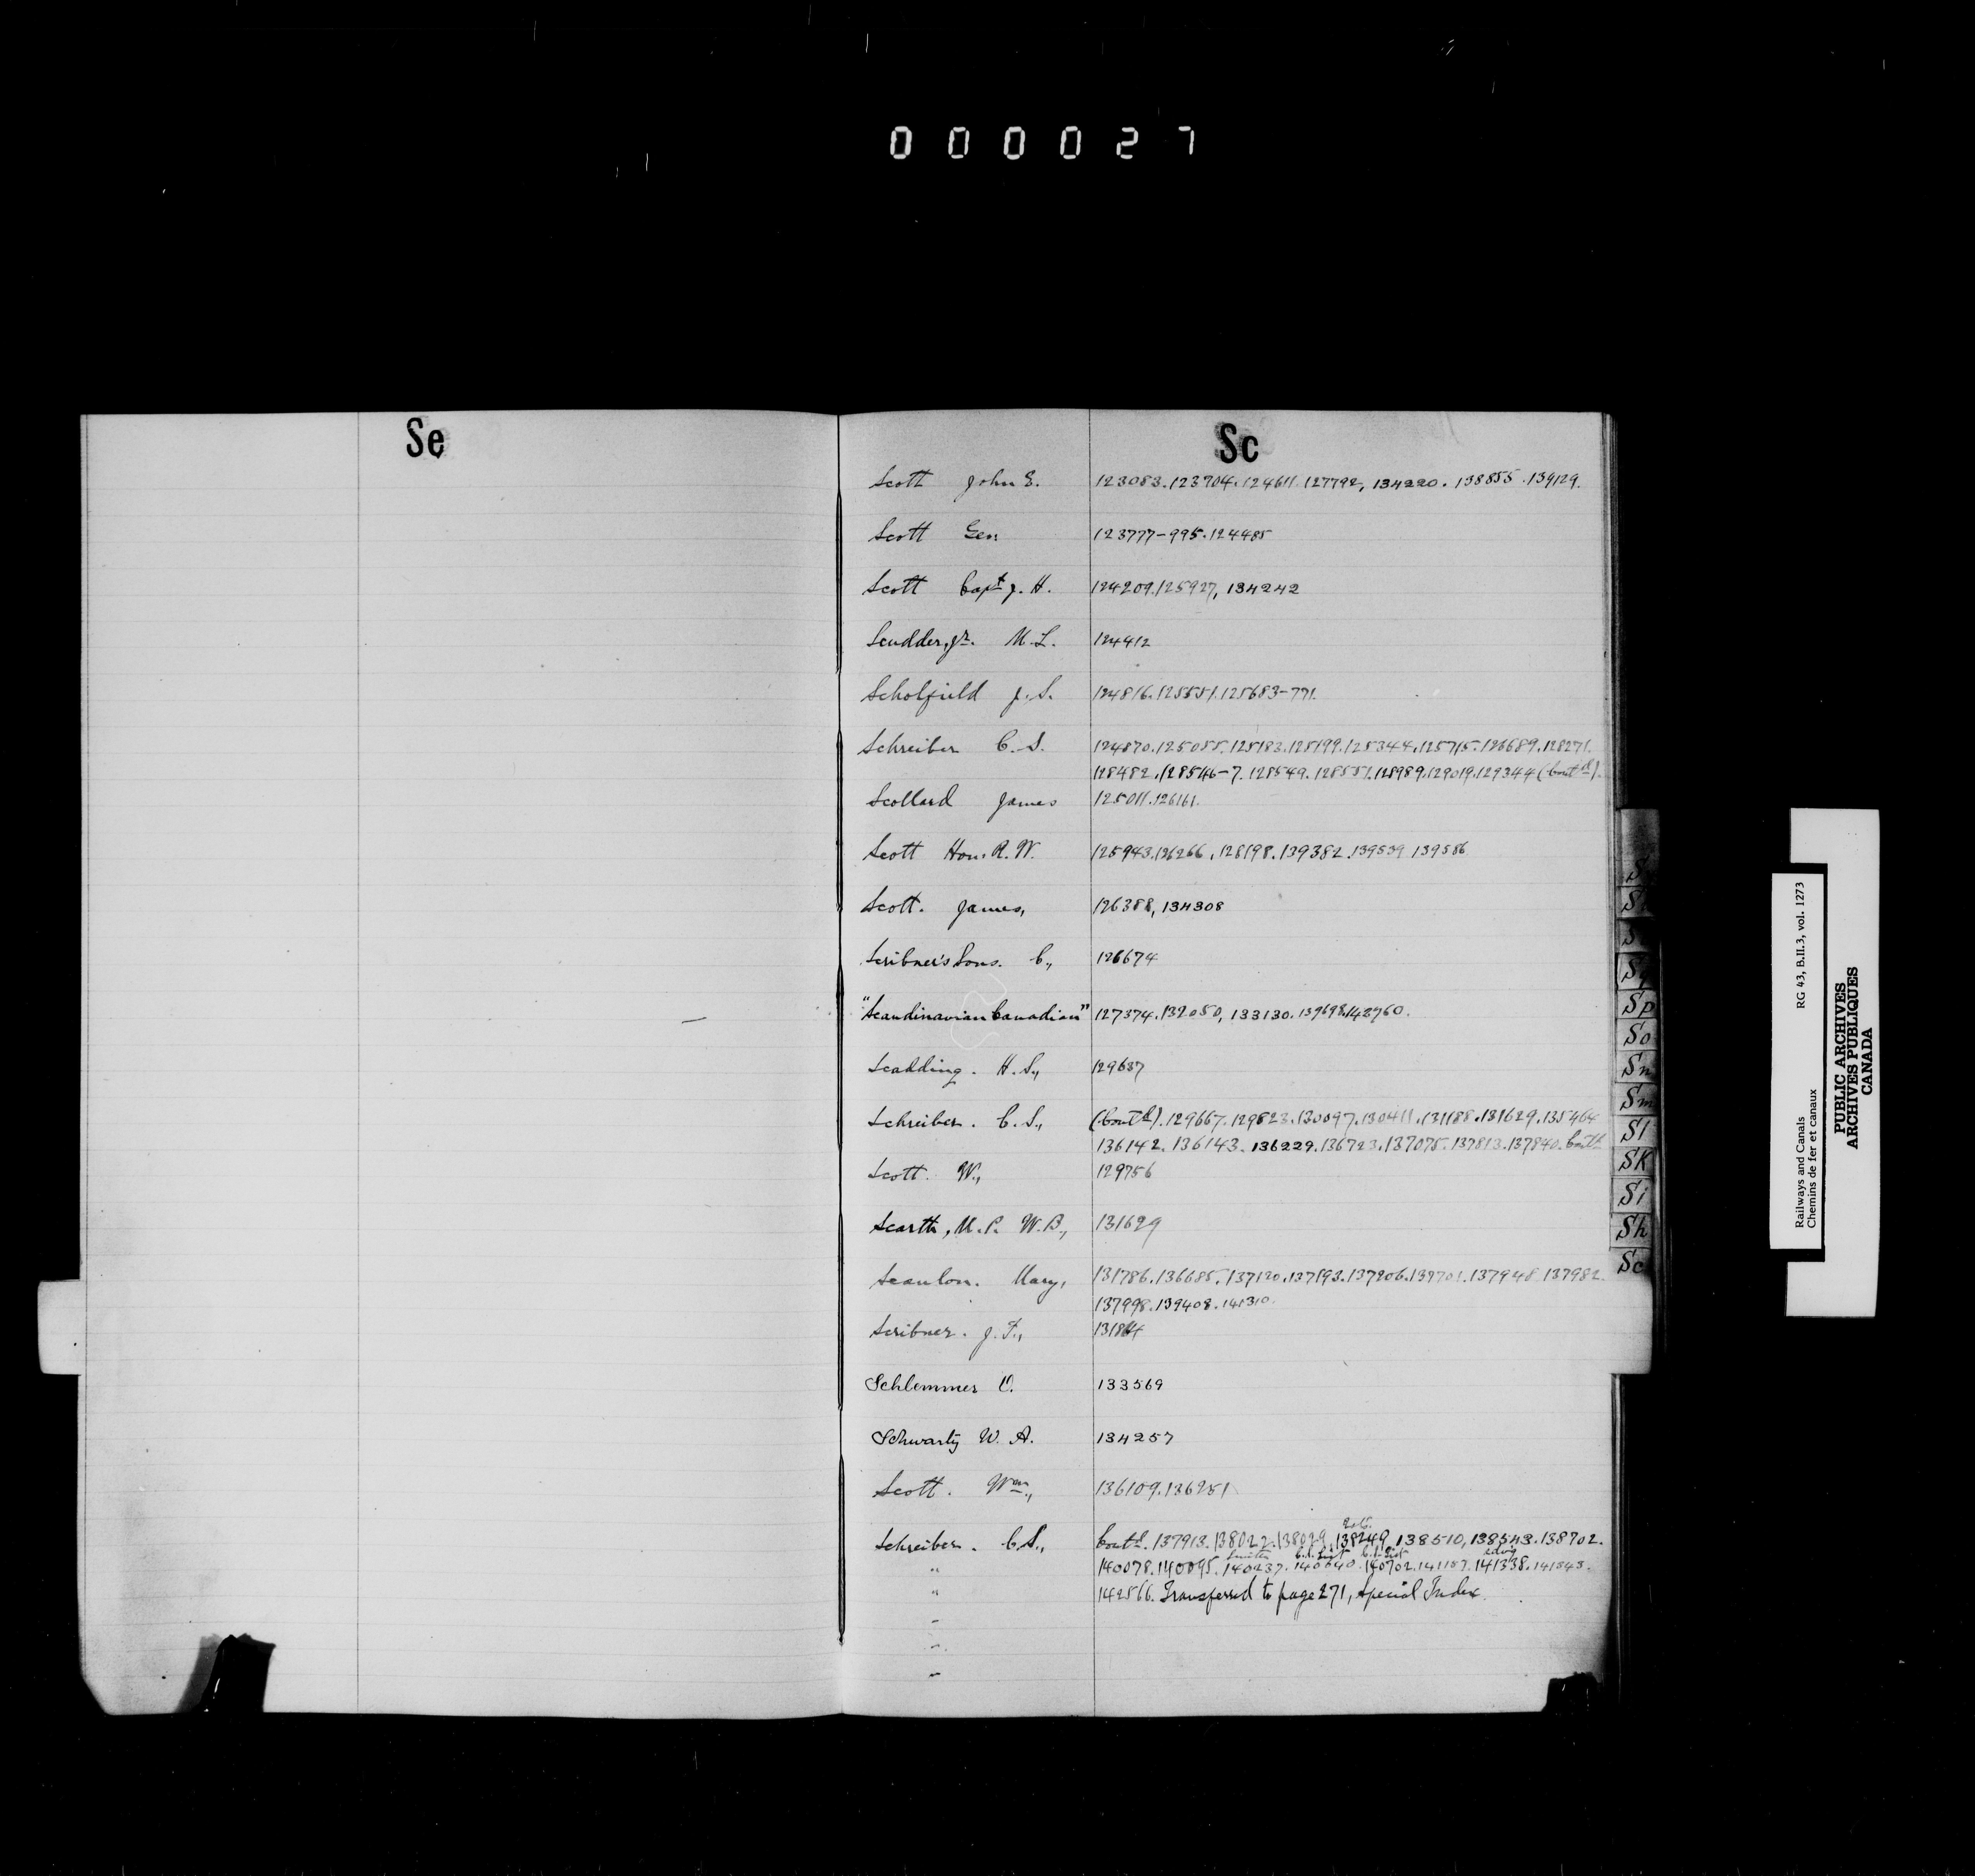 000027
Se
Sc
Scott John E. 123083.123704.124611.127792, 134220. 138855.139129.
Scott Geo 123777-995.124485
Scott Capt J. H. 124209.125927, 134242
Scudder, Jr. M. L. 124412
Scholfield J. S. 124816.125551.125683-771.
Schreiber C. S. 124870.125055.125183.125199.125344.125715.126689.128271.
128482.128546-7.128549.128551.128989.129019.129344 (Contd).
Scollard James 125011.126161.
Scott Hon. R. W. 125943.126266.128198.139382.139539.139586
Scott. James, 126388, 134308
Scribner's Sons. C., 126674
"Scandinavian Canadian" 127374.132050, 133130.139698.142760.
Scadding. H. S., 129637
Schreiber. C. S., (Contd).129667.129823.130097.130411.131188.131629.135464
136142.136143.136229.136723.137075.137813.137840. Contd
Scott. W., 129756
Scarth, M.P. W. B., 131629
Scanlon. Mary, 131786.136685.137120.137193.137206.137701.137948.137982.
137998.139408.141310.
Scribner. J. F., 131864
Schlemmer O. 133569
Schwartz W. A. 134257
Scott. Wm., 136109.136251
Schreiber. C. S., Contd. 137913.138022.138029.138249, 138510, 138543.138702.
" 140078.140095.140237.140640.140702.141187.141338.141843.
" 142566. Transferred to page 271, Special Index.
Sp
So
Sn
Sm
Sl
SK
Si
Sh
Sc
Railways and Canals RG 43, B.II.3, vol. 1273
Chemins de fer et canaux
PUBLIC ARCHIVES
ARCHIVES PUBLIQUES
CANADA